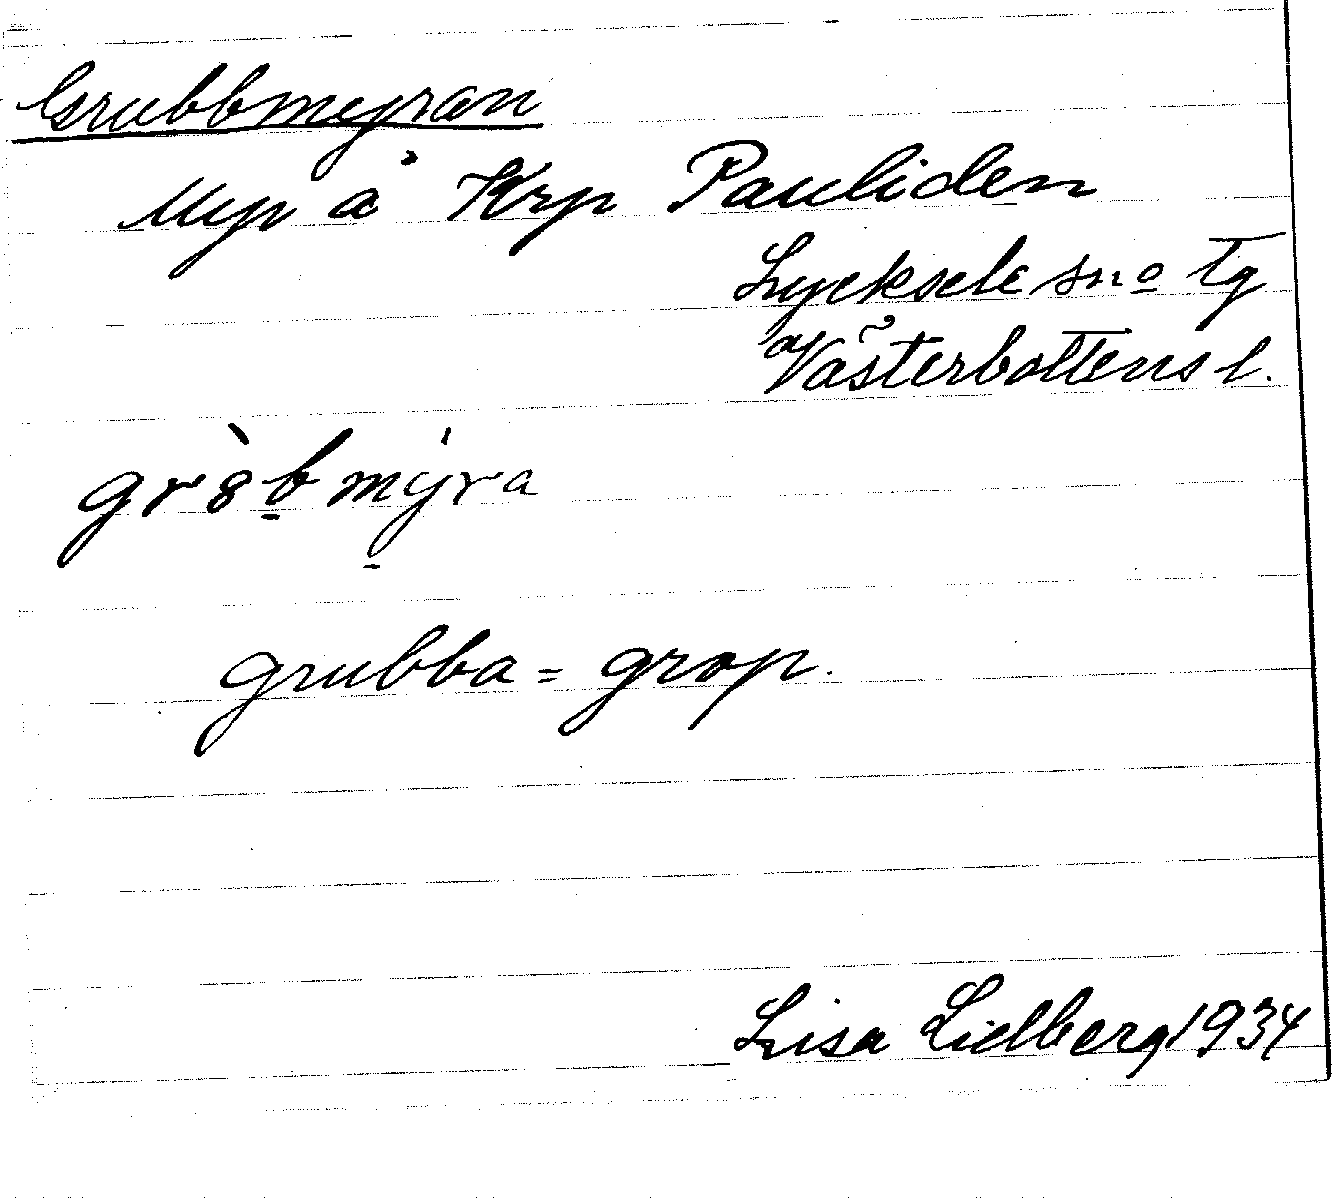 Grubbmyran
Myr å Krp Pauliden
Lycksele sn o tg
Västerbottens l.
gr8̀b̲mýra
grubba = grop.
Lisa Lidberg 1934